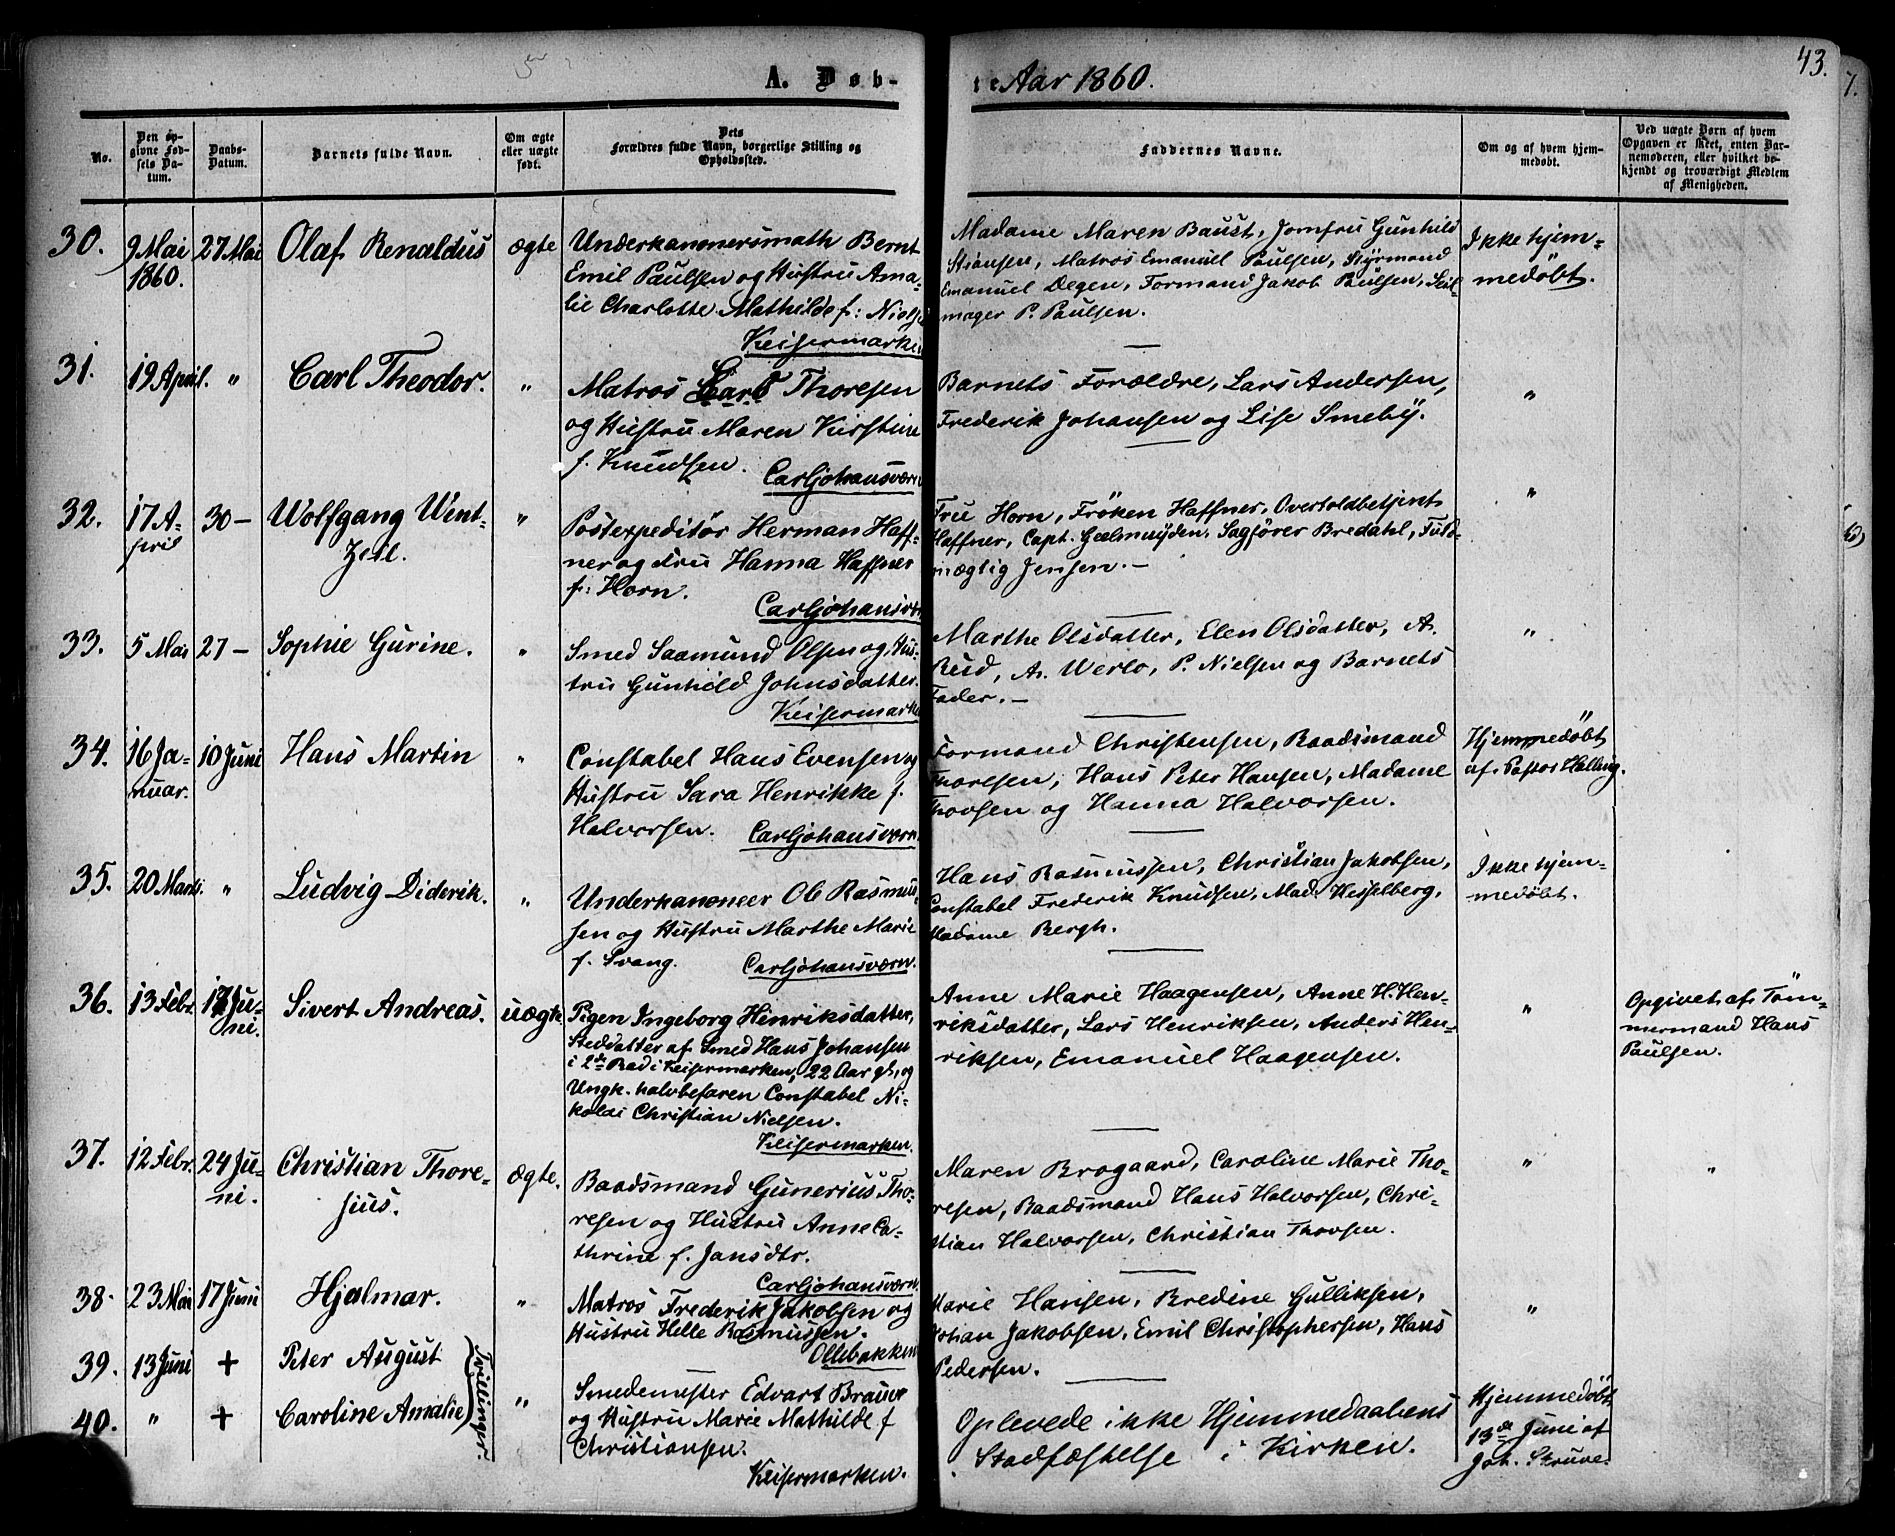 43.
A. Døb-
te Aar 1860.
No.
Den op-
givne Fød-
sels Da-
tum.
Daabs-
Datum.
Barnets fulde Navn.
Om ægte
eller uægte
født.
Dets
Forældres fulde Navn, borgerlige Stilling og
Opholdssted.
Faddernes Navne.
Om og af hvem hjem-
medøbt.
Ved uægte Børn af hvem
Opgaven er skeet, enten Bar-
nemoderen, eller hvilket be-
kjendt og troværdigt Medlem
af Menigheden.
30.
9 Mai
1860.
27 Mai
Olaf Renaldus
ægte
Underkanonersmath Bernt
Emil Paulsen og Hustru Ama-
lie Charlotte Mathilde f: Nielse
Keisermarken
Madame Maren Baust, Jomfru Gunhild
Stiansen, Matros Emanuel Paulsen, Styrmand
Emanuel Degen, Formand Jakob Paulsen, Seil-
mager P. Paulsen.
Ikke hjem-
medøbt.
31.
19 April.
"
Carl Theodor.
"
Matros Lars Thoresen
og Hustru Maren Kirstine
f. Knudsen.
Carljohansværn
Barnets Forældre, Lars Andersen,
Frederik Johansen og Lise Smeby.
"
32.
17 A-
pril
30 –
Wolfgang Went-
zell.
"
Postexpeditør Herman Haff-
ner og Fru Hanna Haffner
f: Horn.
Carljohansværn
Fru Horn, Frøken Haffner, Overtoldbetjent
Haffner, Capt. Geelmuyden, Sagfører Bredahl, Fuld-
mægtig Jensen. –
"
33.
5 Mai
27 –
Sophie Gurine.
"
Smed Saamund Olsen og Hus-
tru Gunhild Johnsdatter.
Keisermarke
Marthe Olsdatter, Elen Olsdatter, A.
Rud, A. Werlo, P. Nielsen og Barnets
Fader. –
"
34.
16 Ja-
nuar.
10 Juni
Hans Martin
"
Constabel Hans Evensen og
Hustru Sara Henrikke f.
Halvorsen.
Carljohansværn
Formand Christensen, Baadsmand
Thoresen, Hans Peter Hansen, Madame
Thovsen og Hanna Halvorsen.
Hjemmedøbt
af Pastor Halling.
"
35.
20 Marts.
"
Ludvig Diderik.
"
Underkanoneer Ole Rasmus-
sen og Hustru Marthe Marie
f. Svang.
Carljohansværn.
Hans Rasmussen, Christian Jakobsen,
Constabel Frederik Knudsen, Mad. Hesselberg,
Madame Bergh.
Ikke hjem-
medøbt.
36.
13 Febr.
17 Ju-
ni.
Sivert Andreas.
uægte
Pigen Ingeborg Hinriksdatter,
Steddatter af Smed Hans Johansen
i 2den Rad i Keisermarken, 22 Aar gl, og
Ungk. halvbefaren Constabel Ni-
kolai Christian Nielsen.
Keisermarken.
Anne Marie Haagensen, Anne H. Hen-
riksdatter, Lars Henriksen, Anders Hen-
riksen, Emanuel Haagensen.
"
Opgivet af Tøm-
mermand Hans
Paulsen.
37.
12 Febr.
24 Ju-
ni.
Christian Thore-
sius.
ægte.
Baadsmand Gunerius Tho-
resen og Hustru Anne Ca-
thrine f. Jansdtr.
Carljohansværn.
Maren Brogaard, Caroline Marie Tho-
resen, Baadsmand Hans Halvorsen, Chri-
stian Halvorsen, Christian Thovsen.
"
"
38.
23 Mai
17 Juni
Hjalmar.
"
Matros Frederik Jakobsen og
Hustru Helle Rasmussen.
Ollebakken
Marie Hansen, Bredine Gulliksen,
Johan Jakobsen, Emil Christophersen, Hans
Pedersen.
"
39.
13 Juni
+
Peter August
40.
"
+
Caroline Amalie
Tvillinger.
"
Smedemester Edvart Brauer
og Hustru Marie Mathilde f
Christiansen.
Keisermarken.
Oplevede ikke Hjemmedaabens
Stadfæstelse i Kirken.
Hjemmedøbt
13de Juni af
Joh. Struve.